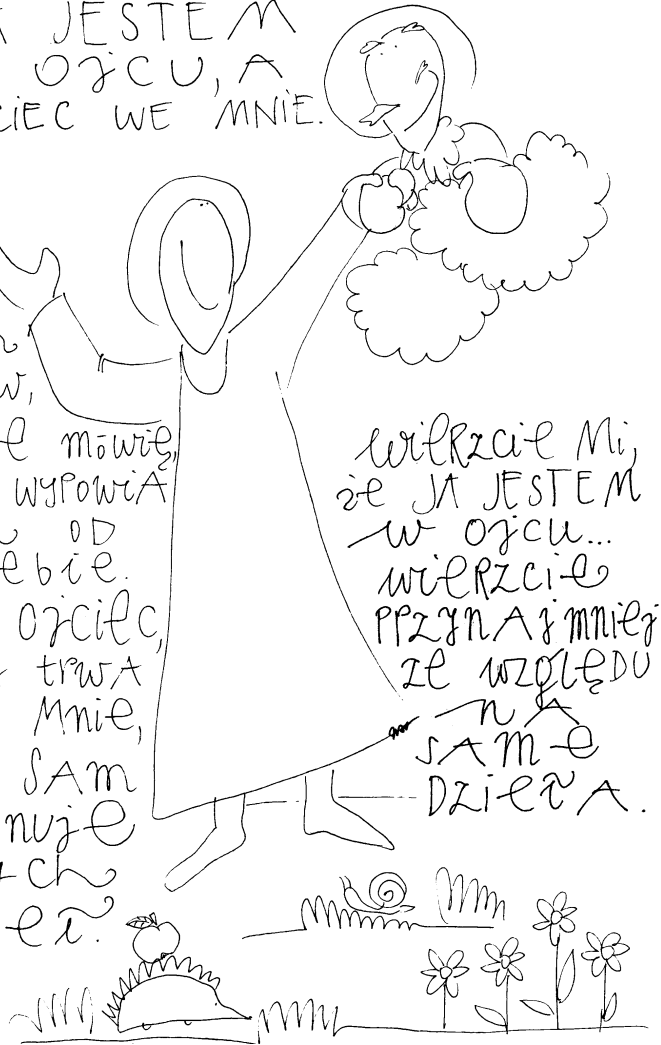 JESTEM
OJCU, A
OJCIEC WE MNIE.
mówię,
WYPOWIADA
OD
SIEBIE.
OJCIEC,
TRWA
MNIE,
SAM
WIERZCIE Mi,
że JA JESTEM
w OJCU...
wiERZCIE
PPZYNAJMNIEJ
ZE WZGLĘDU
NA
SAME
DZIEŁA.